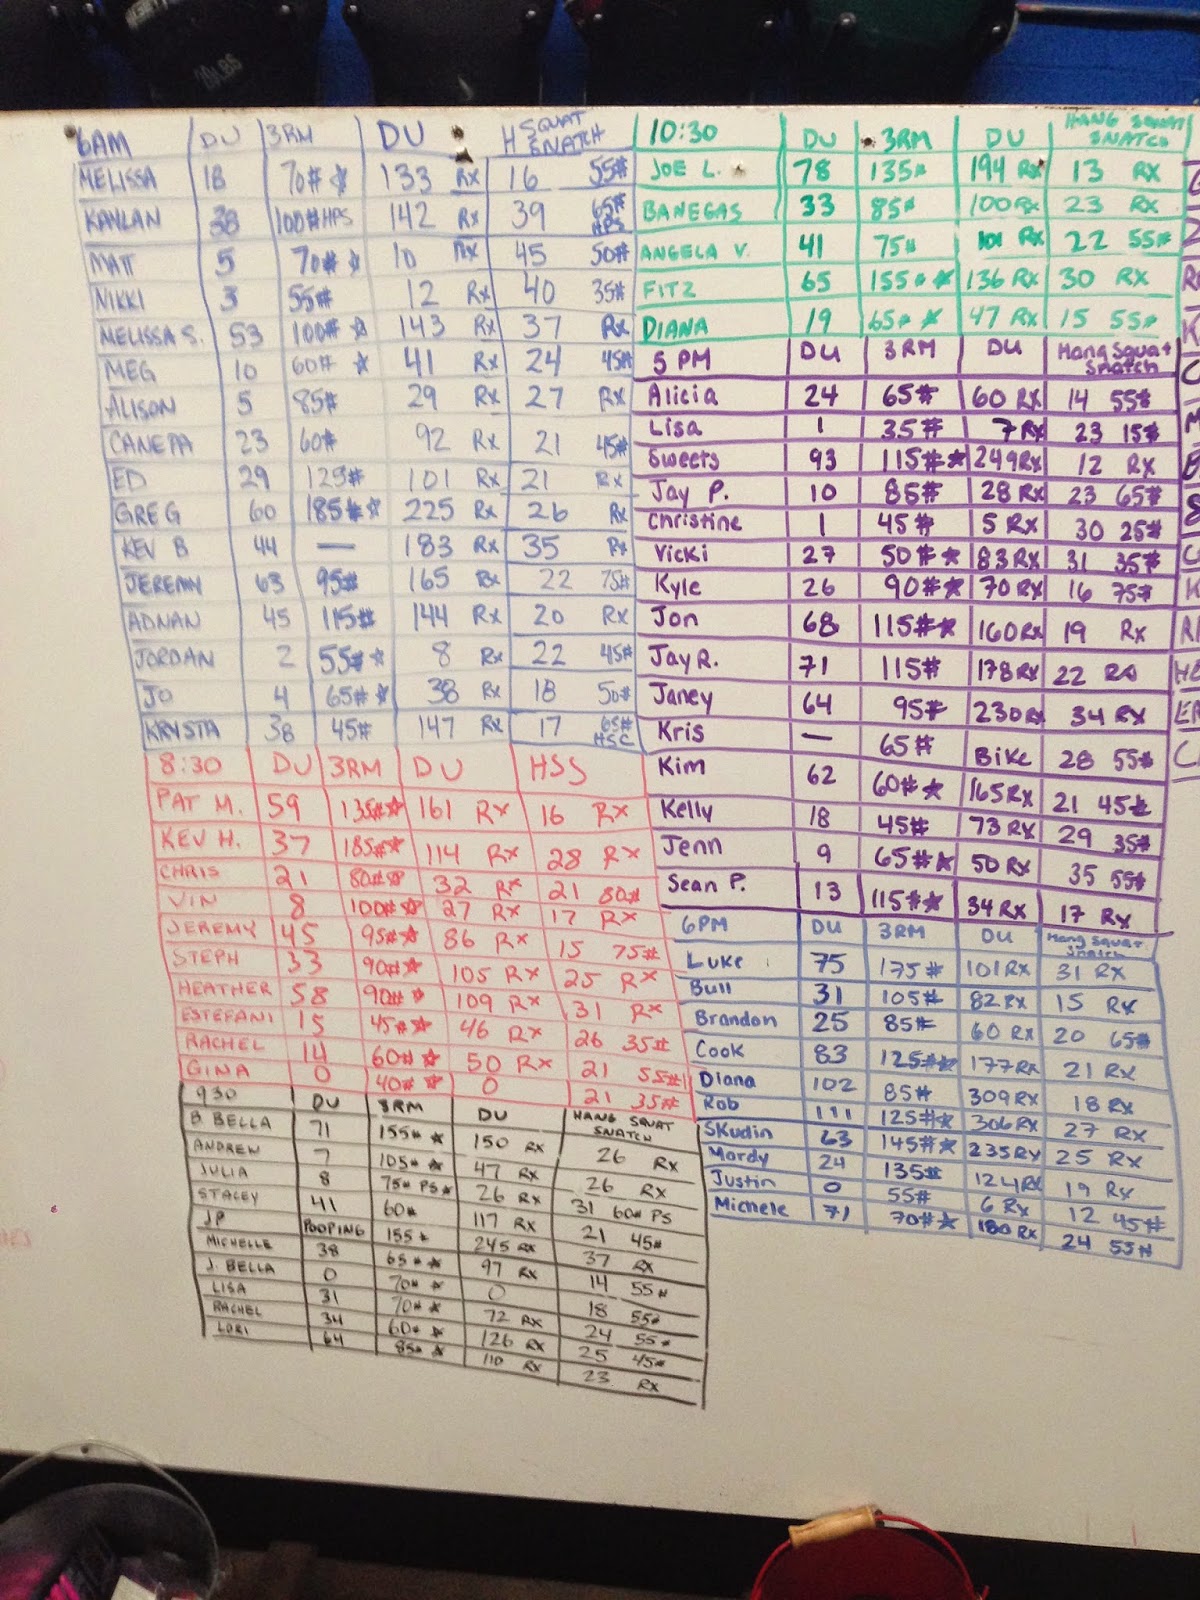 10 LBS
6AM DU 3RM DU H SQUAT SNATCH
MELISSA 18 70# ☆ 133 Rx 16 55#
KANLAN 38 100# HPS 142 Rx 39 65# HPS
MATT 5 70# ☆ 10 Rx 45 50#
NIKKI 3 55# 12 Rx 40 35#
MELISSA S. 53 100# ☆ 143 Rx 37 Rx
MEG 10 60# ☆ 41 Rx 24 45#
ALISON 5 85# 29 Rx 27 Rx
CANEPA 23 60# 92 Rx 21 45#
ED 29 125# 101 Rx 21 Rx
GREG 60 185# ☆ 225 Rx 26 Rx
KEV B 44 — 183 Rx 35 Rx
JEREMY 63 95# 165 Rx 22 75#
ADNAN 45 115# 144 Rx 20 Rx
JORDAN 2 55# ☆ 8 Rx 22 45#
JO 4 65# ☆ 38 Rx 18 50#
KRYSTA 38 45# 147 Rx 17 65# HSC
8:30 DU 3RM DU HSS
PAT M. 59 135# ☆ 161 Rx 16 Rx
KEV H. 37 185# ☆ 114 Rx 28 Rx
CHRIS 21 80# ☆ 32 Rx 21 80#
VIN 8 100# ☆ 27 Rx 17 Rx
JEREMY 45 95# ☆ 86 Rx 15 75#
STEPH 33 90# ☆ 105 Rx 25 Rx
HEATHER 58 90# ☆ 109 Rx 31 Rx
ESTEFANI 15 45# ☆ 46 Rx 26 35#
RACHEL 14 60# ☆ 50 Rx 21 55#
GINA 0 40# ☆ 0 21 35#
930 DU 3RM DU HANG SQUAT SNATCH
B. BELLA 71 155# ☆ 150 Rx 26 Rx
ANDREW 7 105# ☆ 47 Rx 26 Rx
JULIA 8 75# PS ☆ 26 Rx 31 60# PS
STACEY 41 60# 117 Rx 21 45#
JP POOPING 155# 245 Rx 37 Rx
MICHELLE 38 65# ☆ 97 Rx 14 55#
J. BELLA 0 70# ☆ 0 18 55#
LISA 31 70# ☆ 72 Rx 24 55#
RACHEL 34 60# ☆ 126 Rx 25 45#
LORI 64 85# ☆ 110 Rx 23 Rx
10:30 DU 3RM DU HANG SQUAT SNATCH
JOE L. 78 135# 194 Rx 13 Rx
BANEGAS 33 85# 100 Rx 23 Rx
ANGELA V. 41 75# 101 Rx 22 55#
FITZ 65 155# ☆ 136 Rx 30 Rx
DIANA 19 65# ☆ 47 Rx 15 55#
5 PM DU 3RM DU Hang Squat Snatch
Alicia 24 65# 60 Rx 14 55#
Lisa 1 35# 7 Rx 23 15#
Sweets 93 115# ☆ 249 Rx 12 Rx
Jay P. 10 85# 28 Rx 23 65#
Christine 1 45# 5 Rx 30 25#
Vicki 27 50# ☆ 83 Rx 31 35#
Kyle 26 90# ☆ 70 Rx 16 75#
Jon 68 115# ☆ 160 Rx 19 Rx
Jay R. 71 115# 178 Rx 22 Rx
Janey 64 95# 230 Rx 34 Rx
Kris — 65# Bike 28 55#
Kim 62 60# ☆ 165 Rx 21 45#
Kelly 18 45# 73 Rx 29 35#
Jenn 9 65# ☆ 50 Rx 35 55#
Sean P. 13 115# ☆ 34 Rx 17 Rx
6PM DU 3RM DU Hang Squat Snatch
Luke 75 175# 101 Rx 31 Rx
Bull 31 105# 82 Rx 15 Rx
Brandon 25 85# 60 Rx 20 65#
Cook 83 125# ☆ 177 Rx 21 Rx
Diana 102 85# 309 Rx 18 Rx
Rob 111 125# ☆ 306 Rx 27 Rx
Skudin 63 145# ☆ 235 Rx 25 Rx
Mordy 24 135# 124 Rx 19 Rx
Justin 0 55# 6 Rx 12 45#
Michele 71 70# ☆ 180 Rx 24 55#